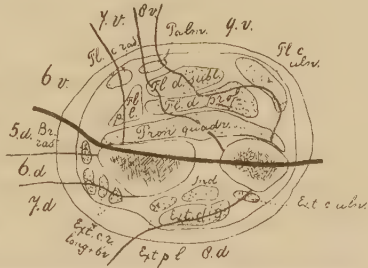 7.v. 8v. 9.v.
Palm.
Fl c rad.
Fl c uln.
6.v.
Fl d subl.
Fl d prof.
Fl p. l.
Pron quadr.
5.d. Br. rad
6.d
7.d
Ind
Ext. dig
Ext c uln.
Ext. c. r. long + br
Ext p l 8.d